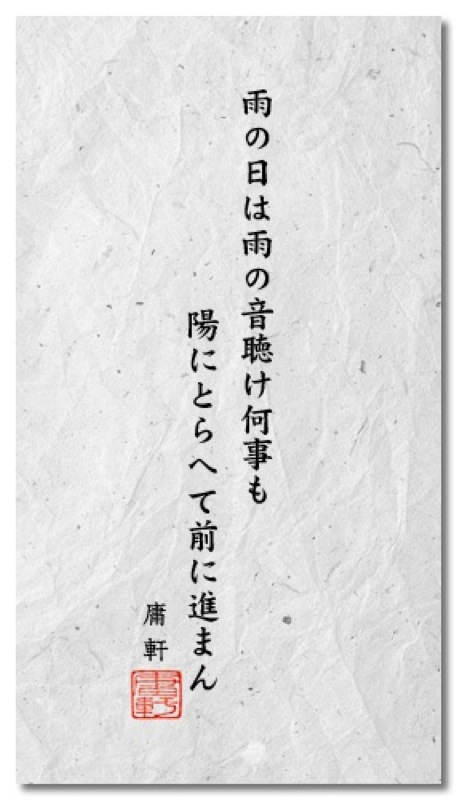 雨の日は雨の音聴け何事も
陽にとらへて前に進まん
庸軒
庸軒